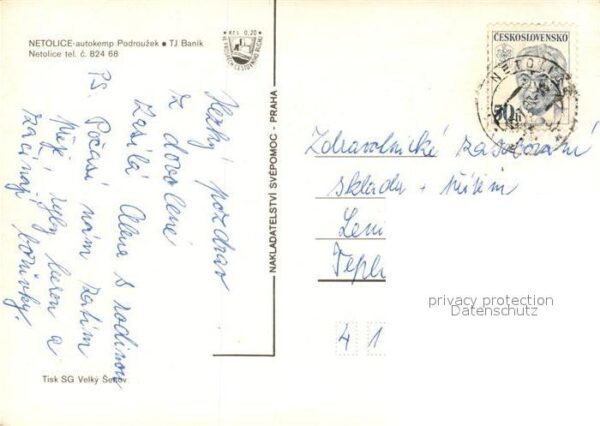 NETOLICE-autokemp Podroužek • TJ Baník
Netolice tel. č. 824 68
Kčs 0,20
Hezký pozdrav
z dovolené
zasílá Alena s rodinou
PS. Počasí nám zatím
přeje, ryby berou a
začínají borůvky.
Tisk SG Velký Šenov
NAKLADATELSTVÍ SVÉPOMOC - PRAHA
ČESKOSLOVENSKO
50h
NETOLICE
Zdravotnické zásobování
sklady +
Tepl
4 1
privacy protection
Datenschutz